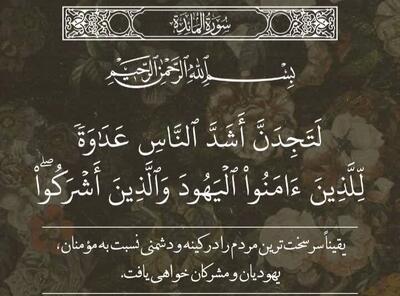 سُورَةُ المَائِدَةِ
بِسْمِ اللَّهِ الرَّحْمَٰنِ الرَّحِيمِ
لَتَجِدَنَّ أَشَدَّ ٱلنَّاسِ عَدَٰوَةٗ
لِّلَّذِينَ ءَامَنُواْ ٱلۡيَهُودَ وَٱلَّذِينَ أَشۡرَكُواْۖ
یقیناً سرسخت‌ترین مردم را در کینه و دشمنی نسبت به مؤمنان،
یهودیان و مشرکان خواهی یافت.